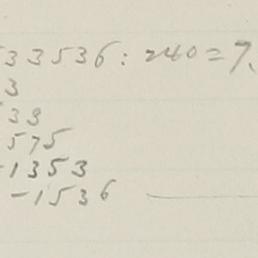 533536: 240=7,
3
33
575
-1353
-1536